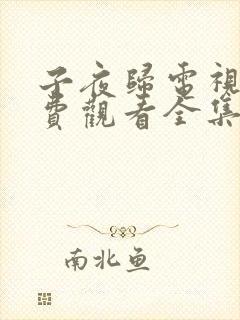 子夜歸電視
費觀看全集
南北鱼